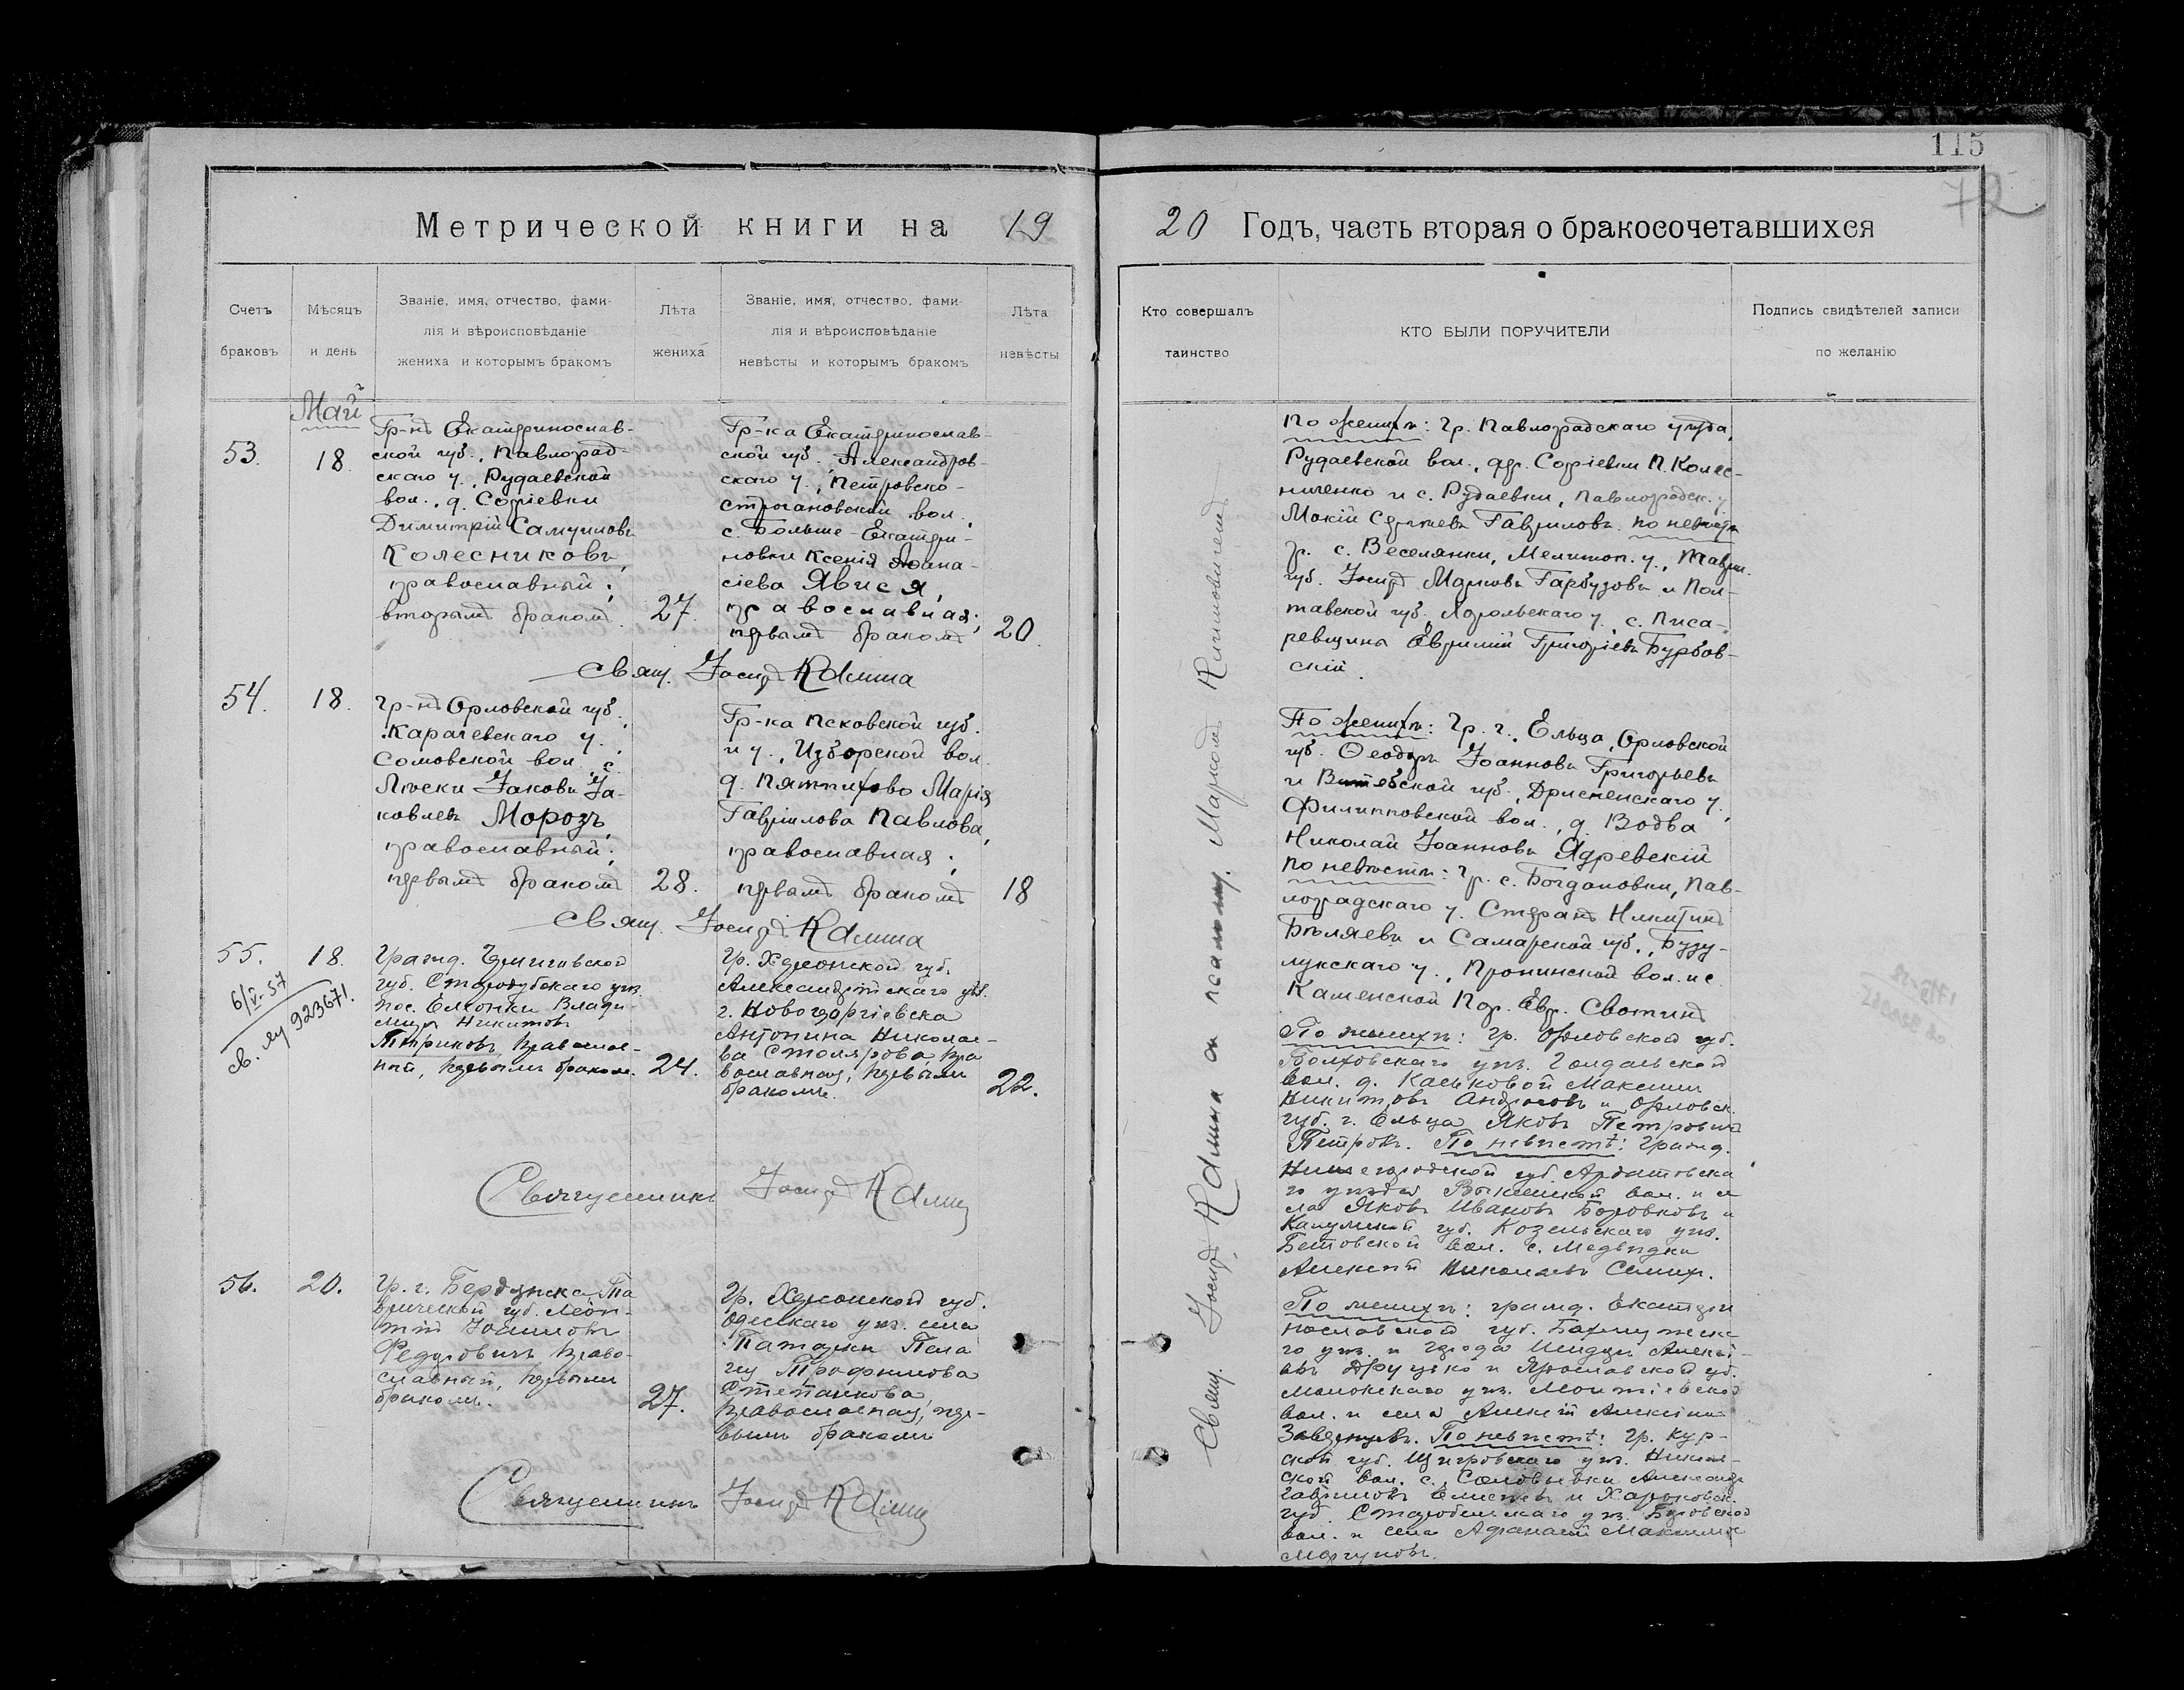 115
72
Метрической книги на 19
20 Годъ, часть вторая о бракосочетавшихся
Счетъ
браковъ
Мѣсяцъ
и день
Званіе, имя, отчество, фами-
лія и вѣроисповѣданіе
жениха и которымъ бракомъ
Лѣта
жениха
Званіе, имя, отчество, фами-
лія и вѣроисповѣданіе
невѣсты и которымъ бракомъ
Лѣта
невѣсты
Кто совершалъ
таинство
КТО БЫЛИ ПОРУЧИТЕЛИ
Подпись свидѣтелей записи
по желанію
Май
53.
18.
Гр-нъ Екатеринослав-
ской губ., Павлоград-
скаго у., Рудаевской
вол., д. Софіевки
Димитрій Самуиловъ
Колесниковъ,
православный;
вторымъ бракомъ.
27.
Гр-ка Екатеринослав-
ской губ., Александров-
скаго у., Петровско-
строгановской вол.,
с. Больше-Екатери-
новки Ксенія Аѳана-
сіева Явися,
православная;
первымъ бракомъ
20.
По женихѣ: гр. Павлоградскаго уѣзда,
Рудаевской вол., дер. Софіевки П. Колес-
ниченко и с. Рудаевки, Павлоградск. у.
Мокій Сергѣевъ Гавриловъ. по невѣстѣ
гр. с. Веселянки, Мелитоп. у., Таврич.
губ. Іосифъ Марковъ Гарбузовъ и Пол-
тавской губ., Хорольскаго у., с. Писа-
ревщина Евфимій Григоріевъ Бурбов-
скій.
Свящ. Іосифъ Калина
54.
18.
Гр-нъ Орловской губ.,
Карачевскаго у.,
Сомовской вол., с.
Лѣски Іаковъ Іа-
ковлевъ Морозъ,
православный;
первымъ бракомъ
28.
Гр-ка Псковской губ.
и у., Изборской вол.
д. Пяттихово Марія
Гаврилова Павлова,
православная;
первымъ бракомъ
18
По женихѣ: Гр. г. Ельца, Орловской
губ. Ѳеодоръ Іоанновъ Григорьевъ
и Витебской губ., Дрисненскаго у.,
Филипповской вол., д. Водва
Николай Іоанновъ Ядревскій
по невѣстѣ: гр. с. Богдановки, Пав-
лоградскаго у. Стефанъ Никитинъ
Бѣляевъ и Самарской губ., Бузу-
лукскаго у., Пронинской вол. и с.
Каменской Пор. Евг. Свотинъ
Свящ. Іосифъ Калина
55.
18.
6/V-57
св. ЛУ 923671.
Гражд. Черниговской
губ. Стародубскаго уѣз.
пос. Елионки Влади-
миръ Никитовъ
Тетриковъ, православ-
ный, первымъ бракомъ.
24.
Гр. Херсонской губ.
Александрійскаго уѣз.
г. Новогеоргіевска
Антонина Николае-
ва Столярова, пра
вославная, первымъ
бракомъ.
22.
По женихѣ: гр. Орловской губ.
Болховскаго уѣз. Голдаевской
вол. д. Каськовой Максимъ
Никитовъ Андросовъ и Орловск.
губ. г. Ельца Яковъ Петровичъ
Петровъ. По невѣстѣ: гражд.
Нижегородской губ. Ардатовска
го уѣзда Выксунской вол. и се
ла Яковъ Ивановъ Боровковъ и
Калужской губ. Козельскаго уѣз.
Бетовской вол. с. Медвѣдки
Алексѣй Николаевъ Семих.
Священникъ Іосифъ Калина
56.
20.
Гр. г. Бердянска Та
врической губ. Леон-
тій Іосифовъ
Федоровичъ, право-
славный, первымъ
бракомъ.
27.
Гр. Херсонской губ.
Одесскаго уѣз. села
Потаржи Пела
гея Трофимова
Степанкова,
православная, пер-
вымъ бракомъ
По женихѣ: гражд. Екатери
нославской губ. Бахмутска
го уѣз. и города Исидоръ Алексѣ-
евъ Друцко и Ярославской губ.
Моложскаго уѣз.
вол. и села Алексѣй Алексѣевъ
По невѣстѣ: гр. Кур-
ской губ. Щигровскаго уѣз. Николь-
ской вол. с. Соловьевки Александръ
Гавриловъ Елисеевъ и Харьковск.
губ. Старобельскаго уѣз.
вол. и села Афанасій Максимов
Моргуновъ.
Священникъ Іосифъ Калина
Свящ. Іосифъ Калина съ псаломщ. Маркомъ Китновичемъ